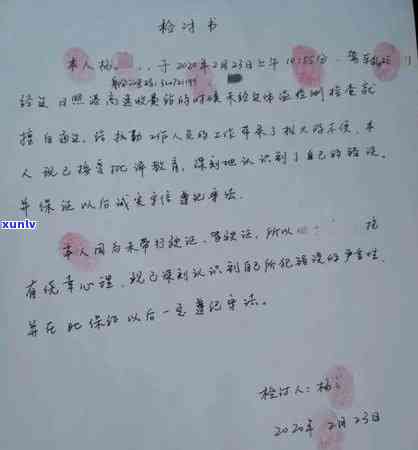 检讨书
本人杨 于2020年2月23日上午10:55分,驾车
身份证号码:
经过日照港高速收费站的时候未经文体温检测检查就
擅自通过,给执勤工作人员的工作带来了极大的不便,本
人现已接受 批评教育,深刻地认识到了自己的错误。
并保证以后诚实守信遵纪守法。
本人因为未带行驶证,驾驶证,所以 抱
有侥幸心理,现已深刻认识到自己所犯错误的严重性,
并在此保证以后一定遵纪守法。
xunlv
检讨人:杨
2020年2月23日